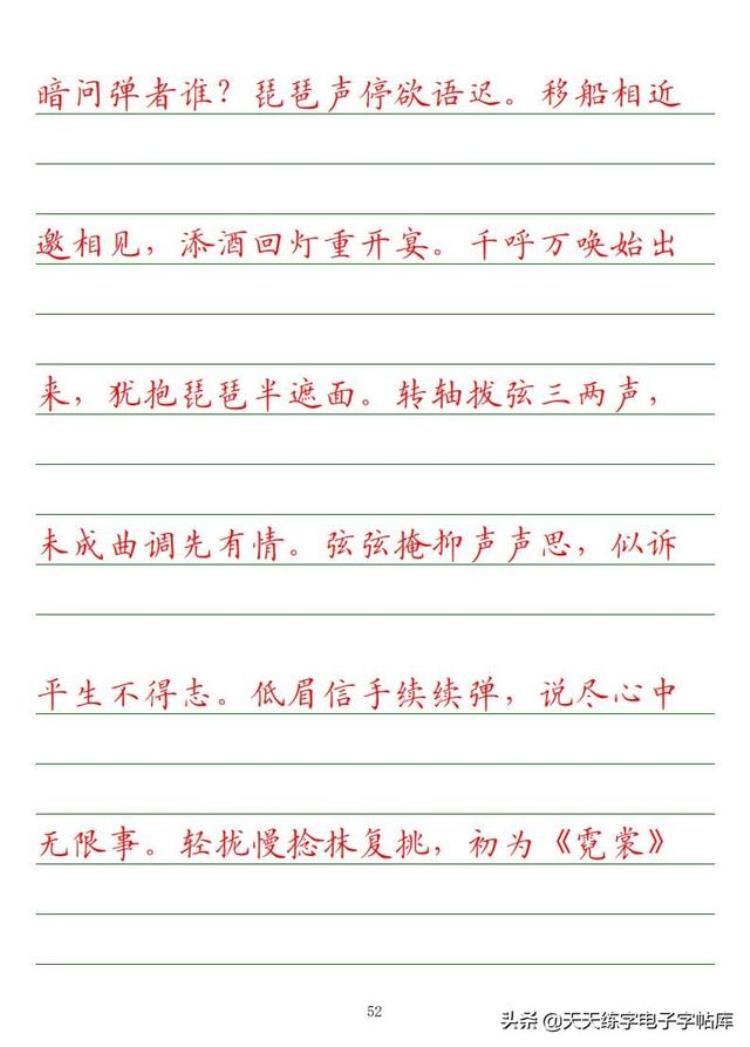 暗问弹者谁？琵琶声停欲语迟。移船相近
邀相见，添酒回灯重开宴。千呼万唤始出
来，犹抱琵琶半遮面。转轴拨弦三两声，
未成曲调先有情。弦弦掩抑声声思，似诉
平生不得志。低眉信手续续弹，说尽心中
无限事。轻拢慢捻抹复挑，初为《霓裳》
52
头条 @天天练字电子字帖库